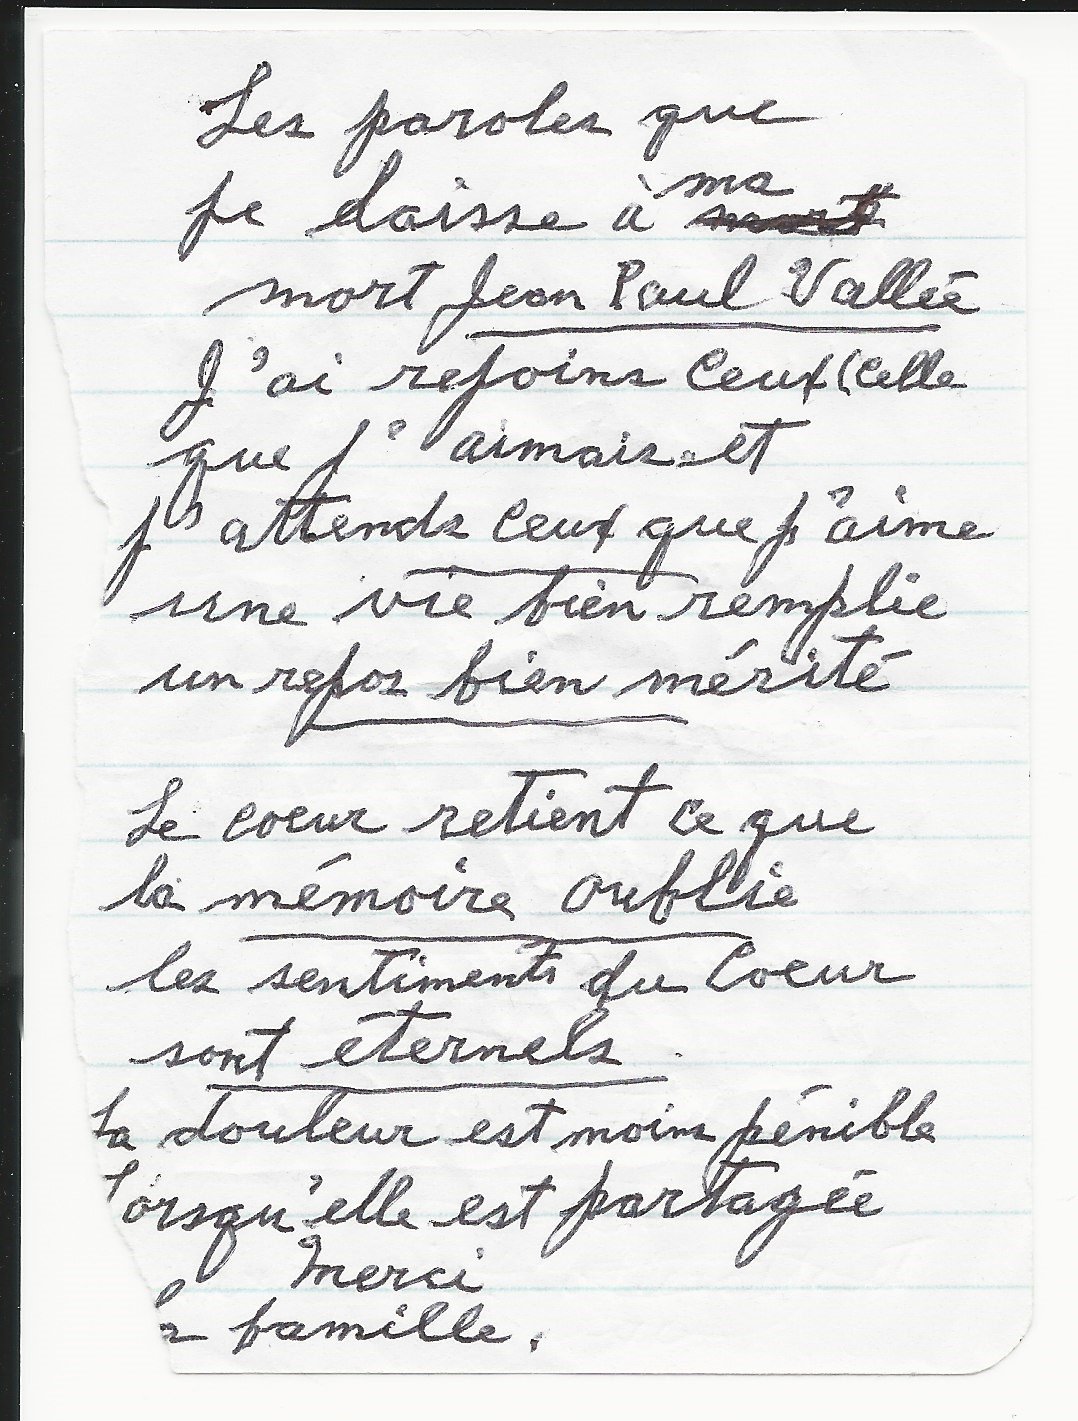 Les paroles que
je laisse à ma
mort Jean Paul Vallée
J'ai rejoins ceux (celle
que j'aimais et
j'attends ceux que j'aime
une vie bien remplie
un repos bien mérité
Le coeur retient ce que
la mémoire oublie
les sentiments du Coeur
sont eternels.
La douleur est moins pénible
lorsqu'elle est partagée
Merci
famille.